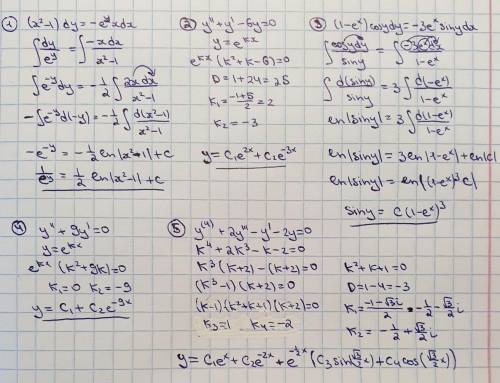 ① (x²-1)dy = -eʸxdx
∫ dy/eʸ = ∫ -xdx/x²-1
∫e⁻ʸdy = -1/2 ∫ 2xdx/x²-1
-∫e⁻ʸd(-y) = -1/2 ∫ d(x²-1)/x²-1
-e⁻ʸ = -1/2 ln|x²-1|+c
1/eʸ = 1/2 ln|x²-1|+c
② y''+y'-6y=0
y=eᵏˣ
eᵏˣ(k²+k-6)=0
D=1+24=25
k₁=-1+5/2=2
k₂=-3
y=C₁e²ˣ+C₂e⁻³ˣ
③ (1-eˣ)cosydy=-3eˣsinydx
∫ cosydy/siny = ∫ -3eˣdx/1-eˣ
∫ d(siny)/siny = 3∫ d(-eˣ)/1-eˣ
ln|siny| = 3∫ d(1-eˣ)/1-eˣ
ln|siny| = 3ln|1-eˣ|+ln|c|
ln|siny| = ln|(1-eˣ)³c|
siny = c(1-eˣ)³
④ y''+9y'=0
y=eᵏˣ
eᵏˣ(k²+9k)=0
k₁=0 k₂=-9
y=C₁+C₂e⁻⁹ˣ
⑤ y⁽⁴⁾+2y'''-y'-2y=0
k⁴+2k³-k-2=0
k³(k+2)-(k+2)=0
(k³-1)(k+2)=0
(k-1)(k²+k+1)(k+2)=0
k₃=1 k₄=-2
k²+k+1=0
D=1-4=-3
k₁=-1-√3i/2=-1/2-√3/2 i
k₂=-1/2+√3/2 i
y=C₁eˣ+C₂e⁻²ˣ+e^(-1/2 x)(C₃sin(√3/2 x)+C₄cos(√3/2 x))